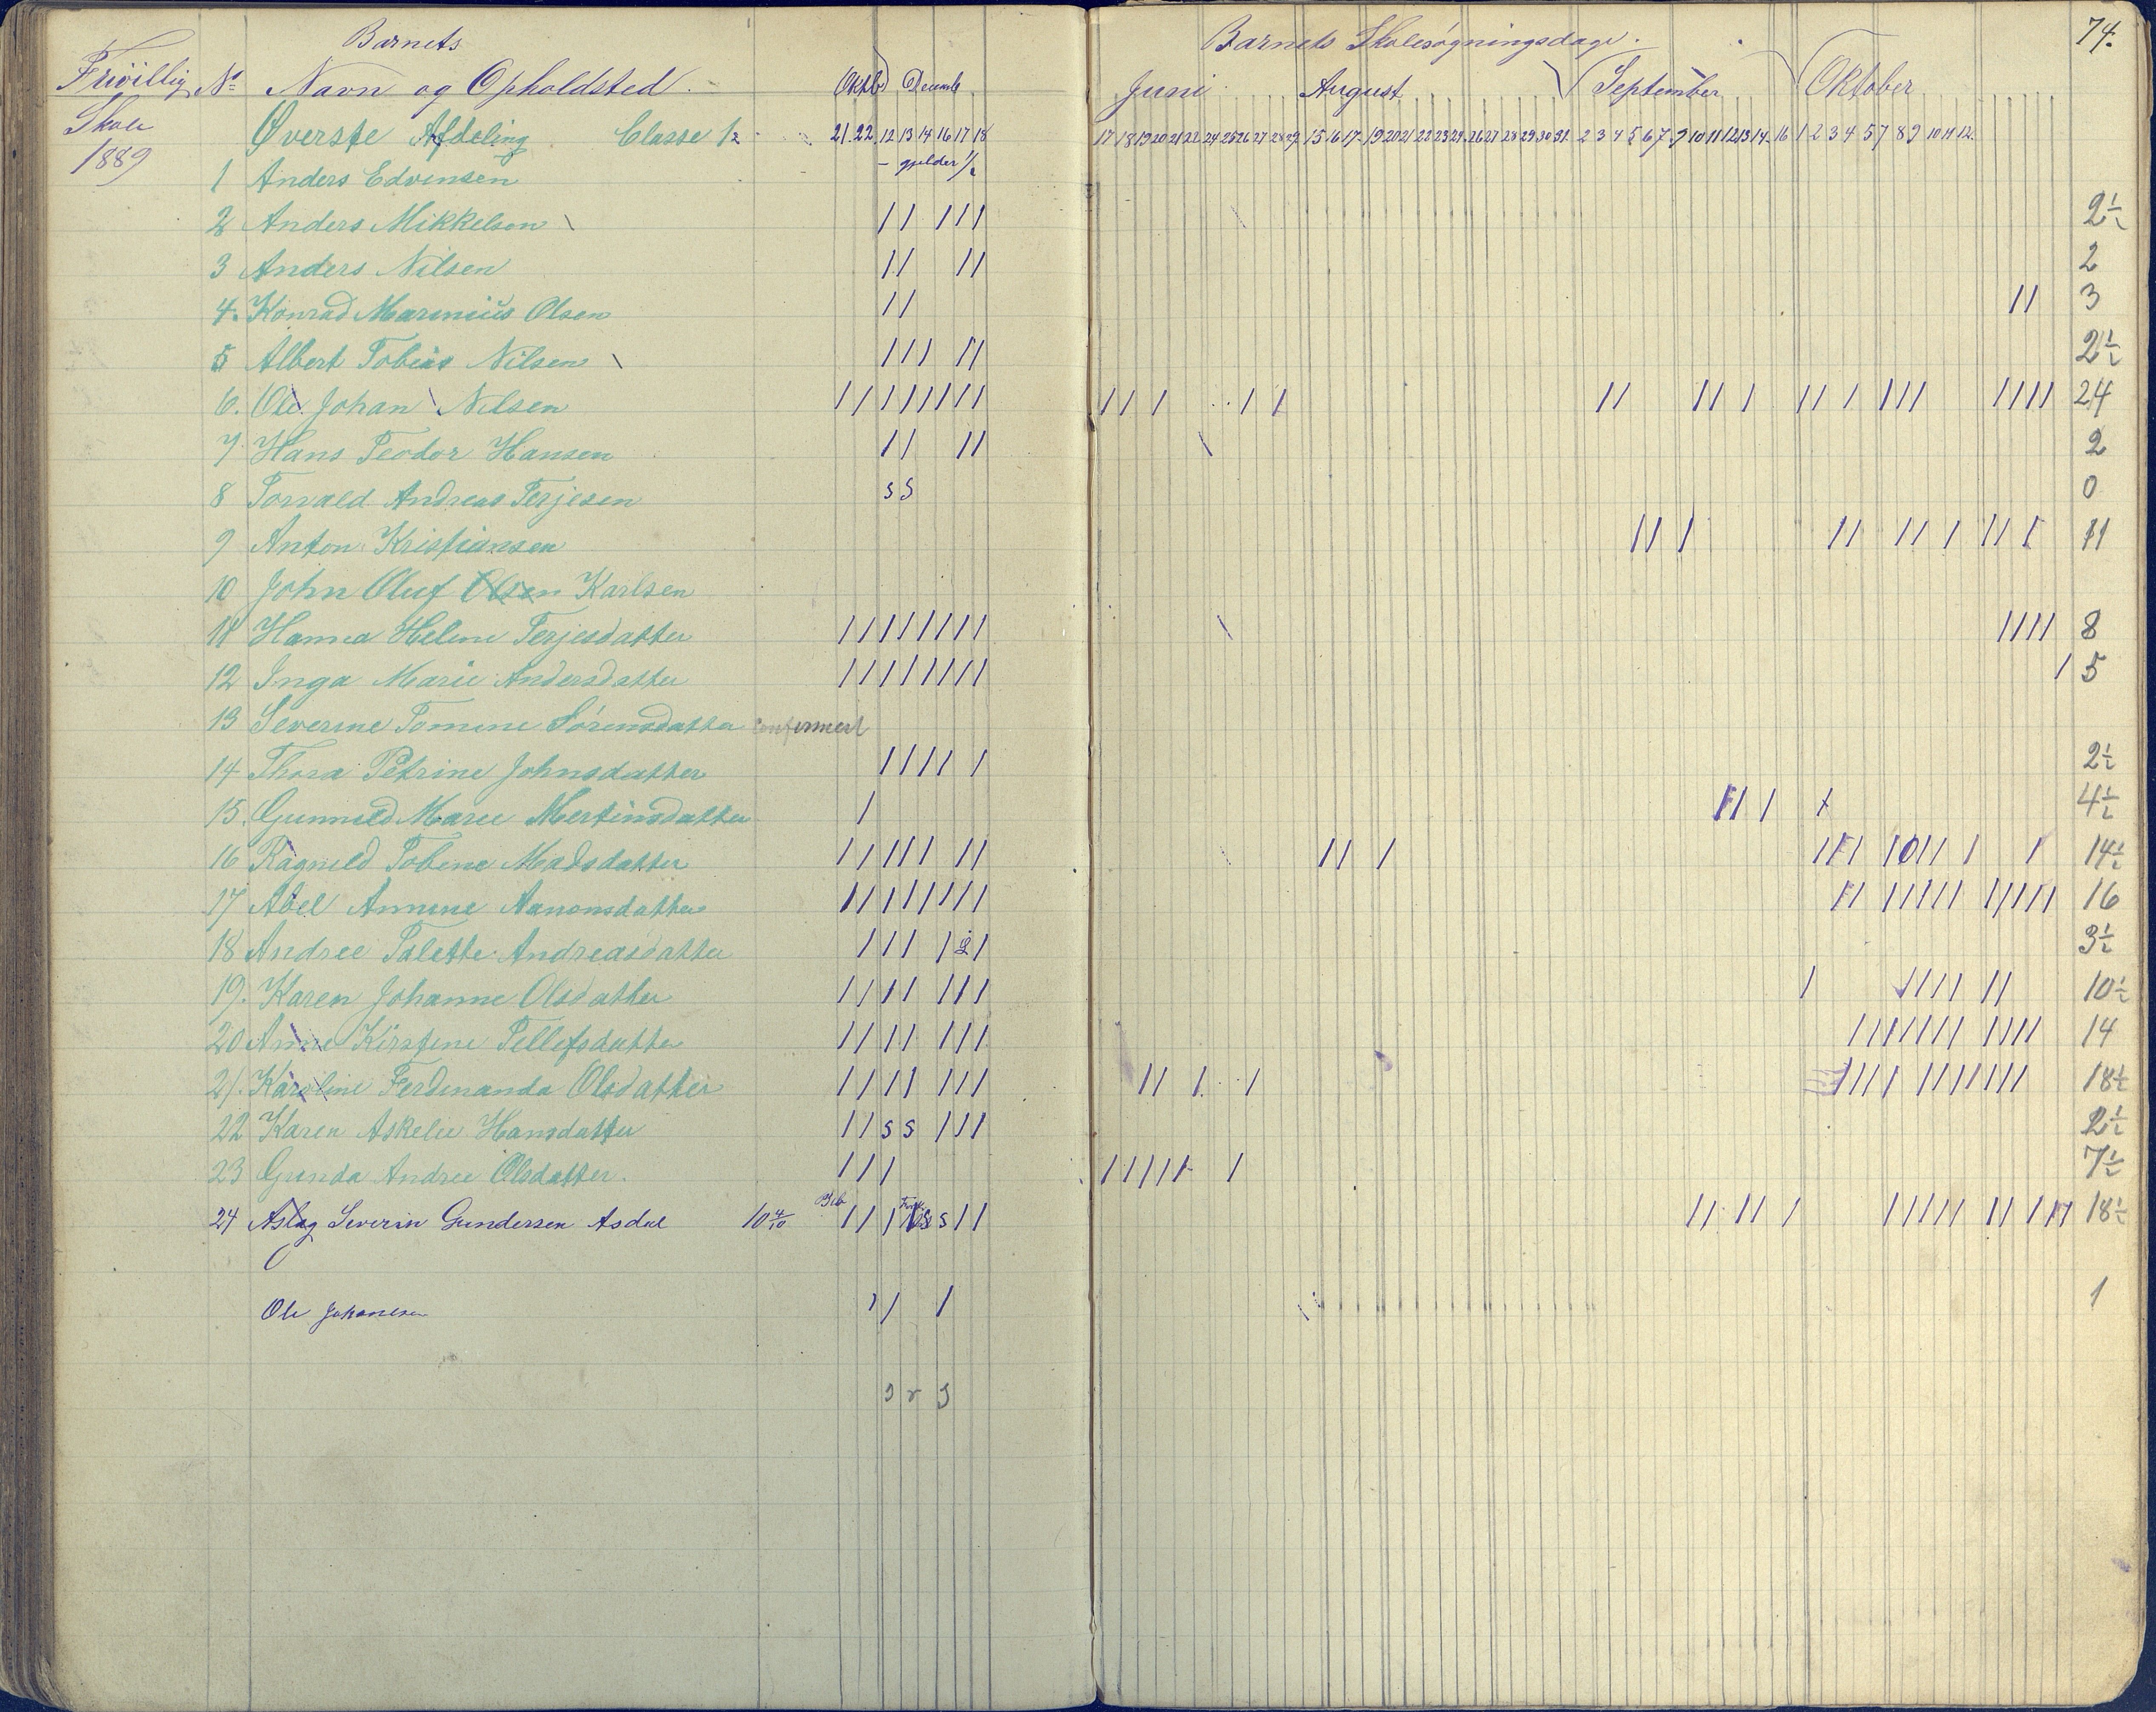 74.
Barnets
Barnets Skolesøgningsdage.
Frivillig No Navn og Opholdsted. Oktb Decemb Juni August September Oktober
Skole
1889
Øverste Afdeling Classe 1 21. 22. 12 13 14 16 17 18 17 18 19 20 21 22 24 25 26 27 28 29 15 16 17 19 20 21 22 23 24 26 27 28 29 30 31 2 3 4 5 6 7 9 10 11 12 13 14 16 1 2 3 4 5 7 8 9 10 11 12
– gjelder 1/2
1 Anders Edvinsen
2 Anders Mikkelsen \ // /// 2 1/2
3 Anders Nilsen // // 2
4. Konrad Marinius Olsen // // 3
5 Albert Tobias Nilsen \ /// // 2 1/2
6. Ole Johan Nilsen //////// /// // // /// /// /// //// 24
7. Hans Teodor Hansen // // 2
8 Torvald Andreas Terjesen s s 0
9 Anton Kristiansen /// // /// /// 11
10 John Oluf Olsen Karlsen
11 Hanna Helene Terjesdatter //////// //// 8
12 Inga Marie Andersdatter //////// / 5
13 Severine Tomine Sørensdatter Confirmert
14 Thora Petrine Johnsdatter //// / 2 1/2
15. Gunnild Marie Mertinsdatter / /// / 4 1/2
16 Ragnild Tobine Madsdatter ///// // /// 14 1/2
17 Abel Annine Aanonsdatter //////// // ///// ///// 16
18 Andree Talette Andreasdatter /// / / 3 1/2
19. Karen Johanne Olsdatter //// /// / //// // 10 1/2
20 Anne Kirstine Tellefsdatter //// /// /////// //// 14
21. Karoline Ferdinanda Olsdatter //// /// // / / //// /////// 18 1/2
22 Karen Askelie Hansdatter // s s /// 2 1/2
23 Gunda Andree Olsdatter. /// ///// / 7 1/2
24 Aslag Severin Gundersen Asdal 10 4/10 // / s // // // / ///// // / 18 1/2
Ole Johanesen // / 1
3 r 3